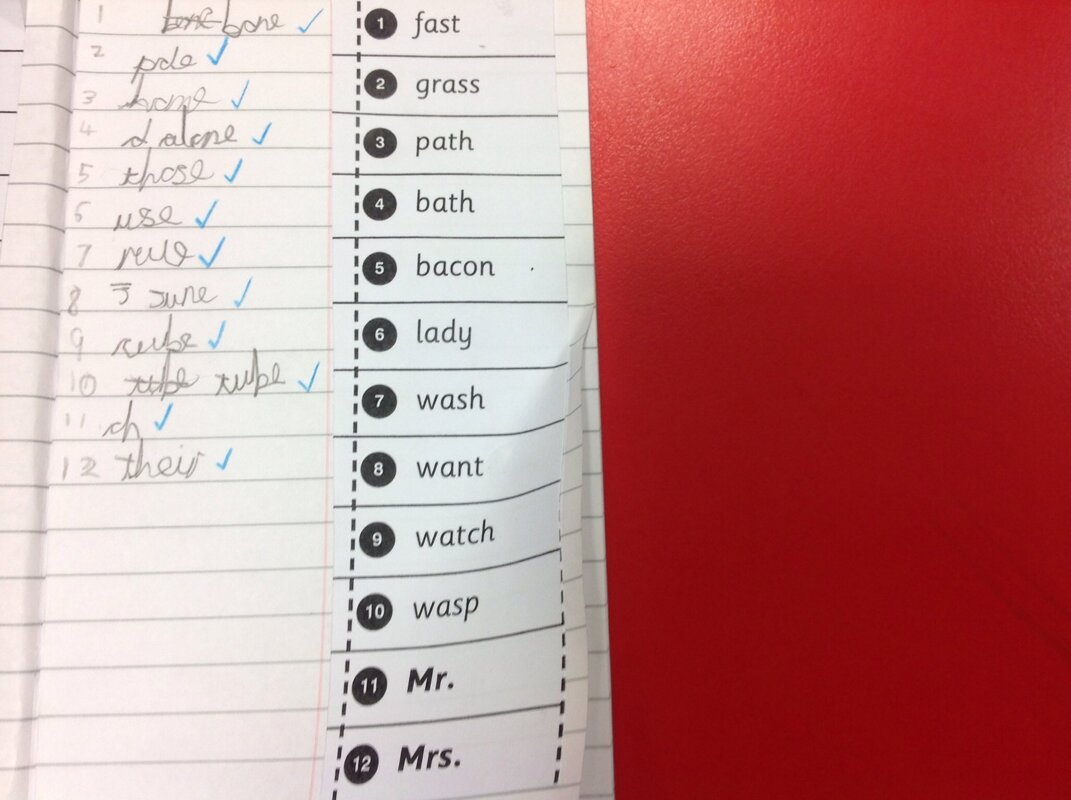 1 bone
2 pole
3 home
4 alone
5 those
6 use
7 rule
8 June
9 cube
10 tube tube
11 ch
12 their
1 fast
2 grass
3 path
4 bath
5 bacon
6 lady
7 wash
8 want
9 watch
10 wasp
11 Mr.
12 Mrs.